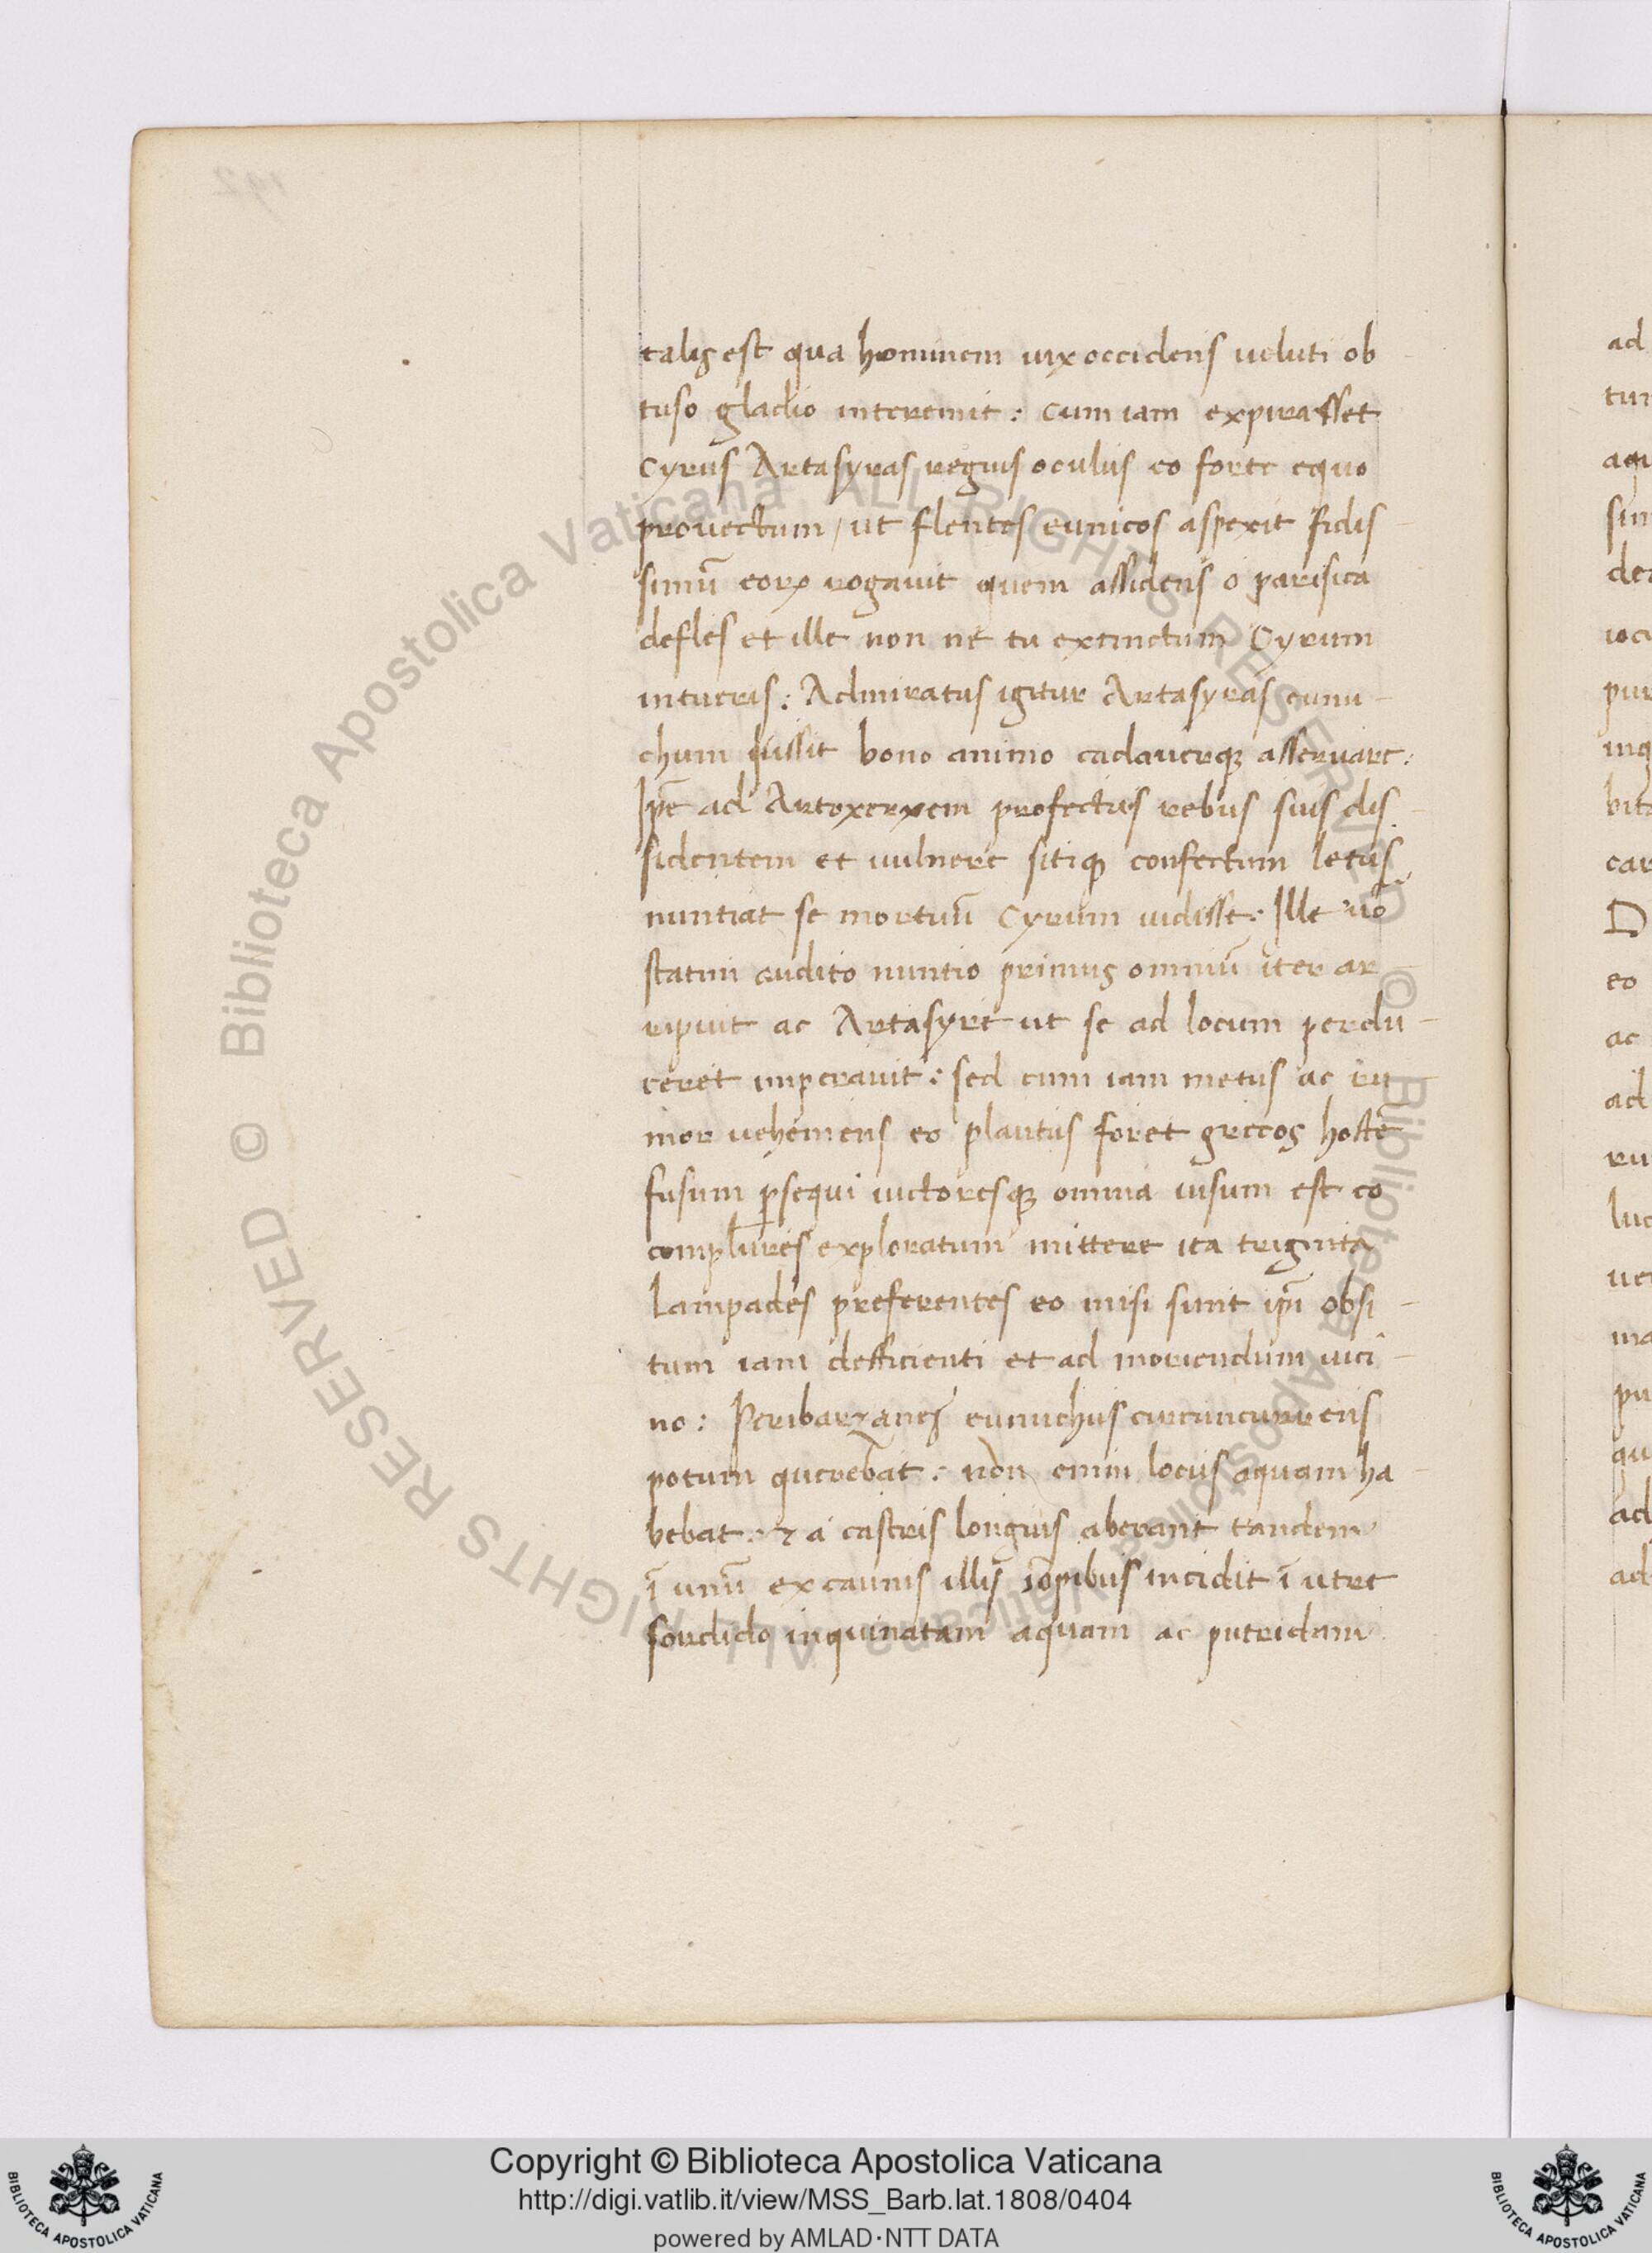 talis est qua hominem uix occidens ueluti ob
tuso gladio interemit: cum iam expirasset
Cyrus Artasyras regius oculus eo forte equo
prouectum / ut flentes eunicos aspexit fidis
simū eoꝝ rogauit quem assidens o parisica
defles et ille non ne tu extinctum Cyrum
intueris: Admiratus igitur Artasyras eunu-
chum iussit bono animo cadauerqꝫ asseruare:
Ip̄e ad Artoxerxem profectus rebus suis dis
sidentem et uulnere sitiqꝫ confectum letus
nuntiat se mortuū Cyrum uidisse: Ille uo
statim audito nuntio primus omniū iter ar-
ripiuit ac Artasyre ut se ad locum perdu-
ceret imperauit: sed cum iam metus ac ru-
mor uehemens eo plantus foret grecos hostē
fusum ꝑsequi uictoresqꝫ omnia uisum est eo
complures exploratum mittere ita triginta
lampades preferentes eo misi sunt ip̄i obsi-
tum iam defficienti et ad moriendum uici-
no: Peribarzanes eunuchus circuncurrens
potum querebat: non enim locus aquam ha-
bebat: ⁊ a castris longius aberant tandem
ī unū ex caunis illis īopibus incidit ī utre
sordido inquinatam aquam ac putridam
ad
ad
ac
eo
D
Copyright © Biblioteca Apostolica Vaticana
http://digi.vatlib.it/view/MSS_Barb.lat.1808/0404
powered by AMLAD·NTT DATA
BIBLIOTECA APOSTOLICA VATICANA
BIBLIOTECA APOSTOLICA VATICANA
© Biblioteca Apostolica Vaticana ALL RIGHTS RESERVED © Biblioteca Apostolica Vaticana ALL RIGHTS RESERVED